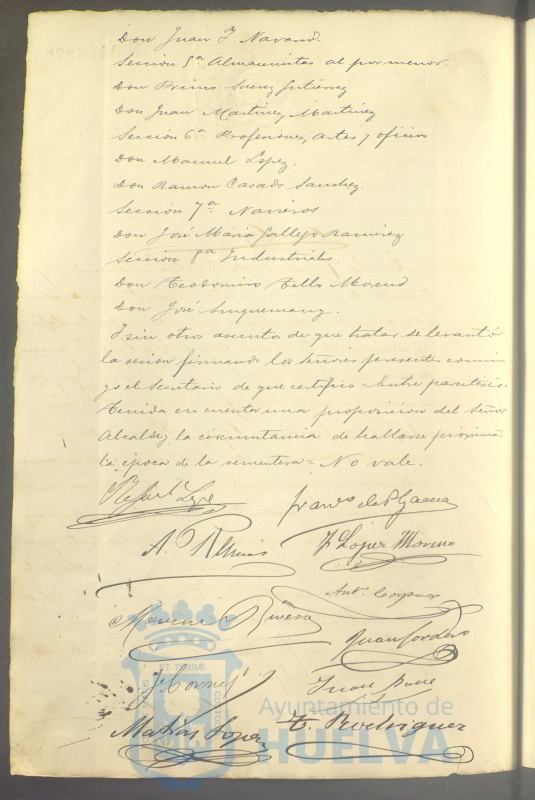 Don Juan J. Navarro.
Seccion 5ª Almacenistas al por menor.
Don Primo Saenz Gutierrez
Don Juan Martinez Martinez
Seccion 6ª Profesiones, artes y oficios
Don Manuel Lopez.
Don Ramon Casado Sanchez.
Seccion 7ª Navieros
Don José Maria Gallego Ramirez
Seccion 8ª Industriales.
Don Teodomiro Tello Moreno
Don José
Y sin otro asunto de que tratar se levantó
la sesion firmando los señores presentes conmi
go el Secretario de que certifico = Entre parentesis.
tenida en cuenta una proposicion del Señor
Alcalde, la circunstancia de hallarse próxima
la época de la sementera = No vale.
Rafael
Franco de P García
A.
J Lopez Moreno
Antº
Manuel Rivera
Juan Cordero
Juan
Matias Lopez
T. Rodriguez
Ayuntamiento de
HUELVA